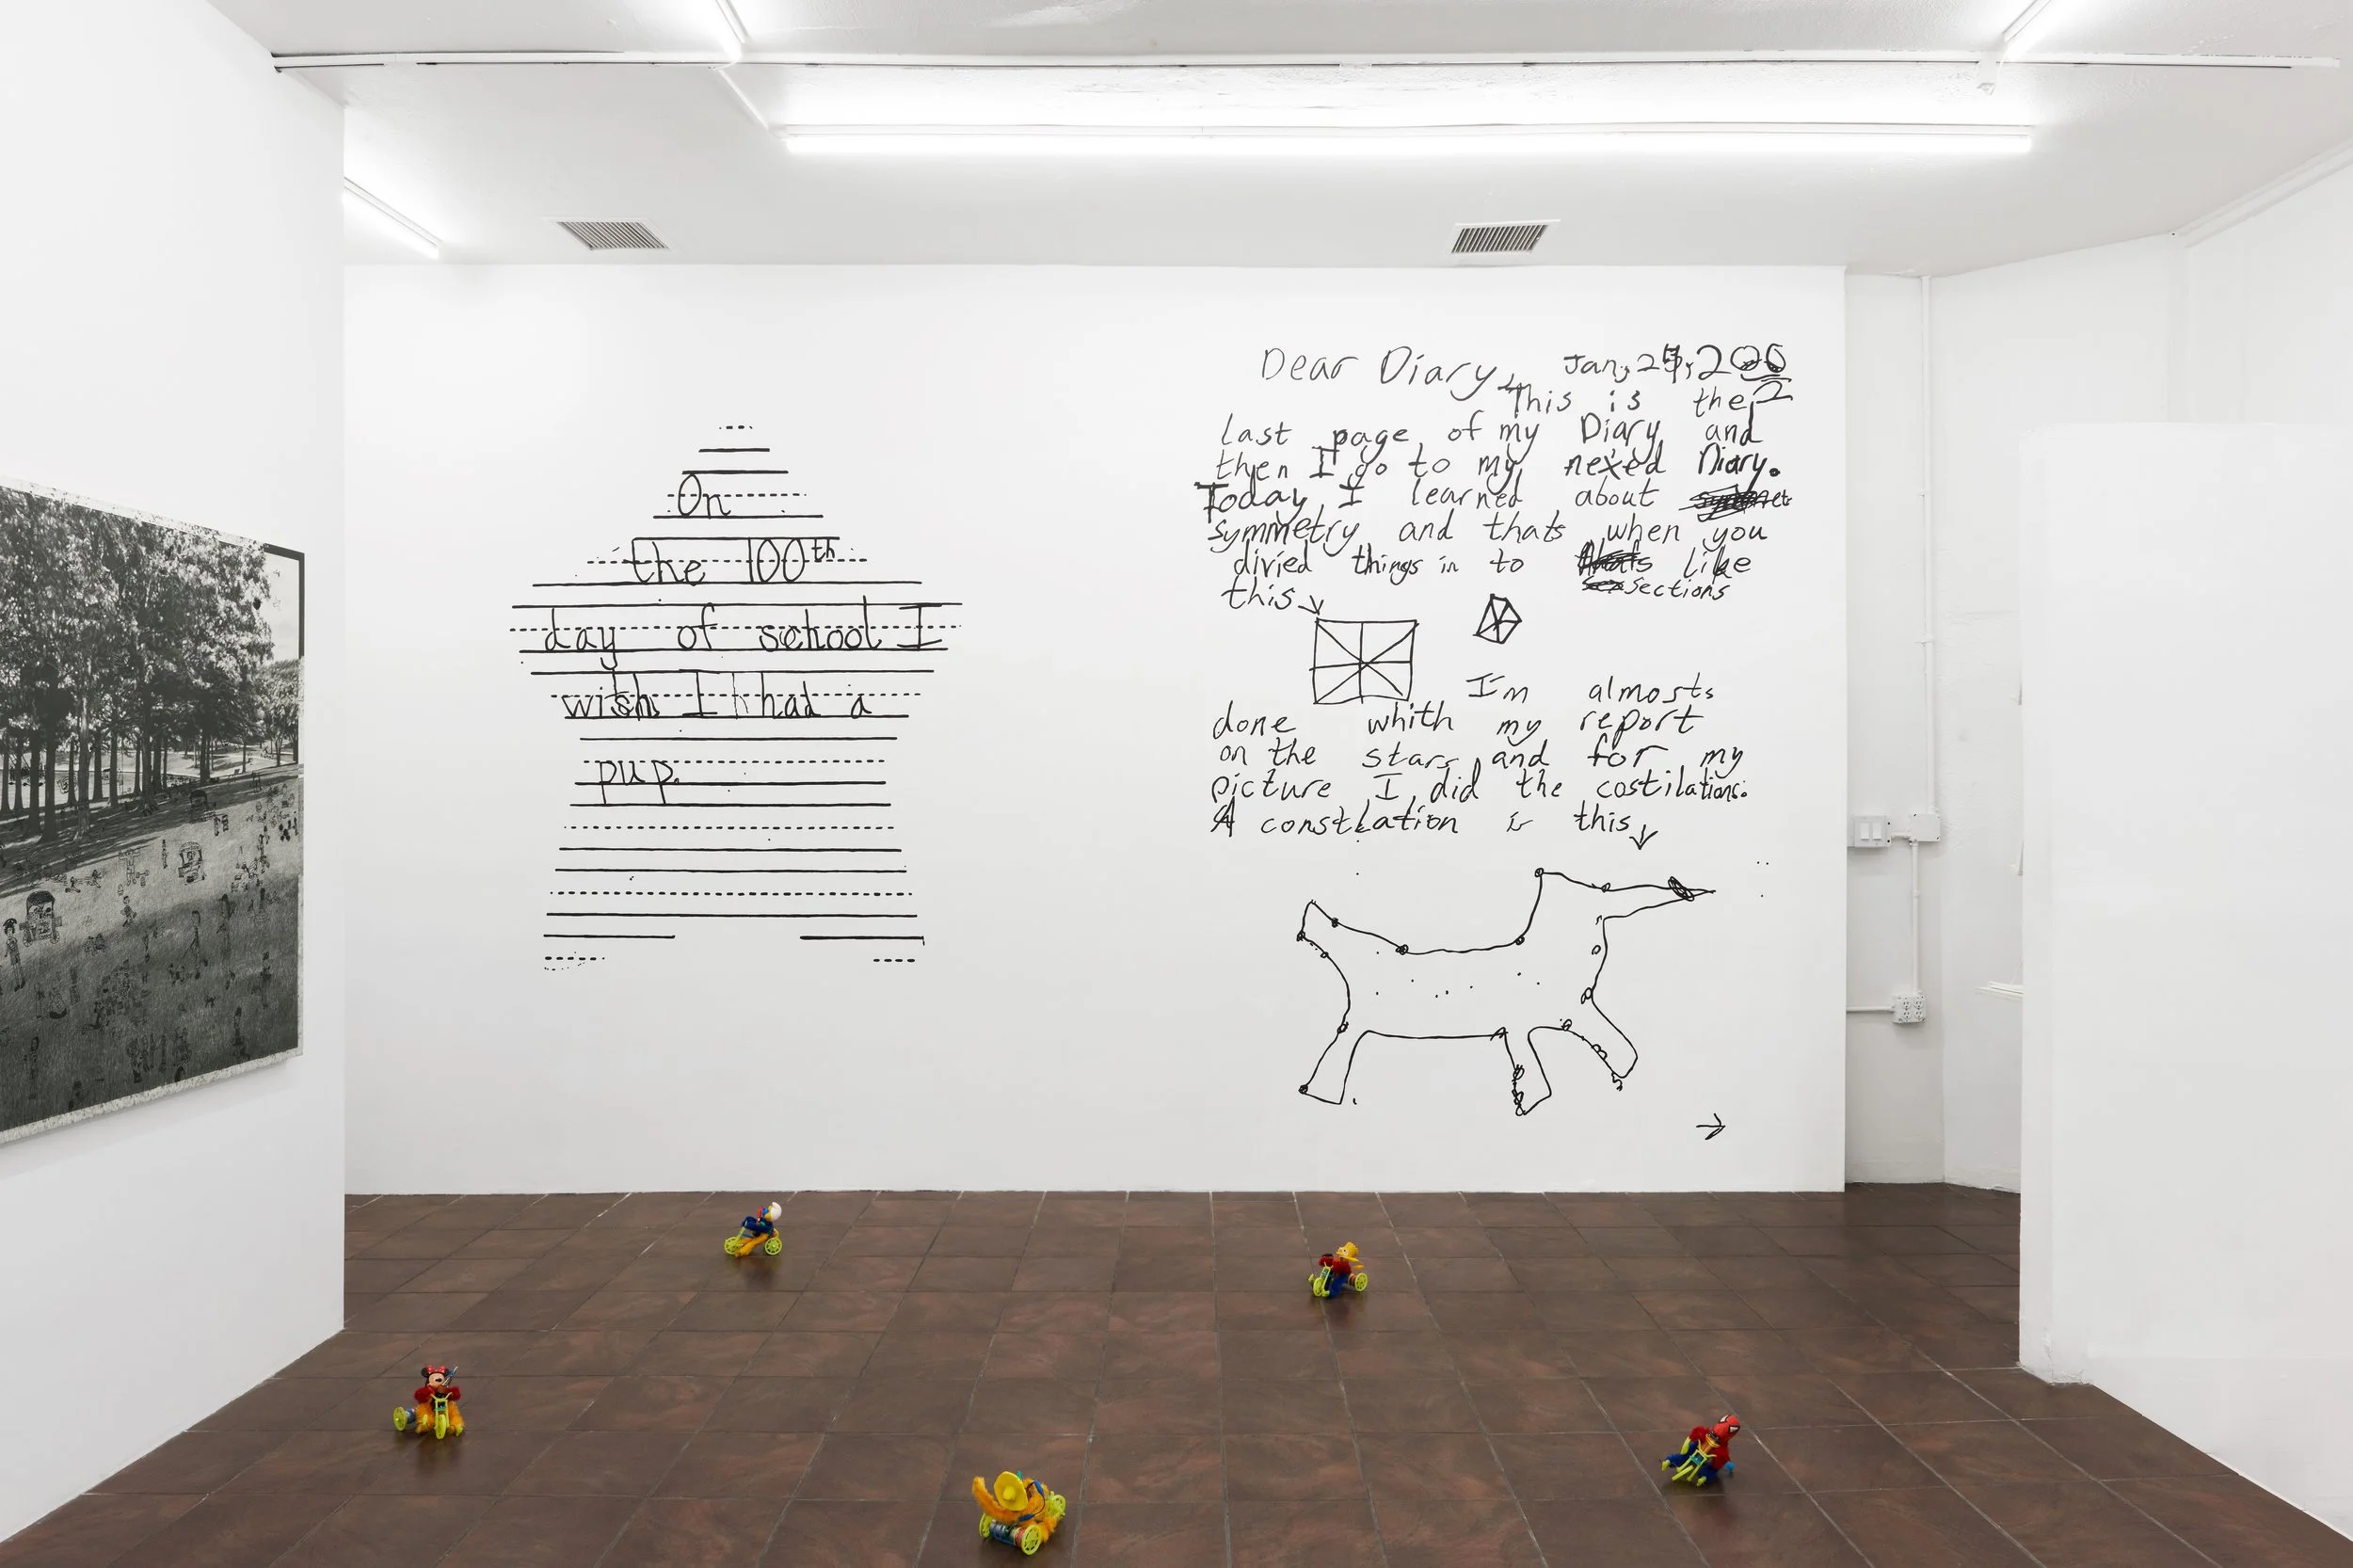 On
the 100th
day of school I
wish I had a
pup.
Dear Diary, Jan, 24, 2002
This is the
last page of my Diary and
then I go to my nexed Diary.
Today I learned about
symmetry and thats when you
divied things in to like
sections
this
I'm almosts
done whith my report
on the stars and for my
picture I did the costilations.
A constlation is this